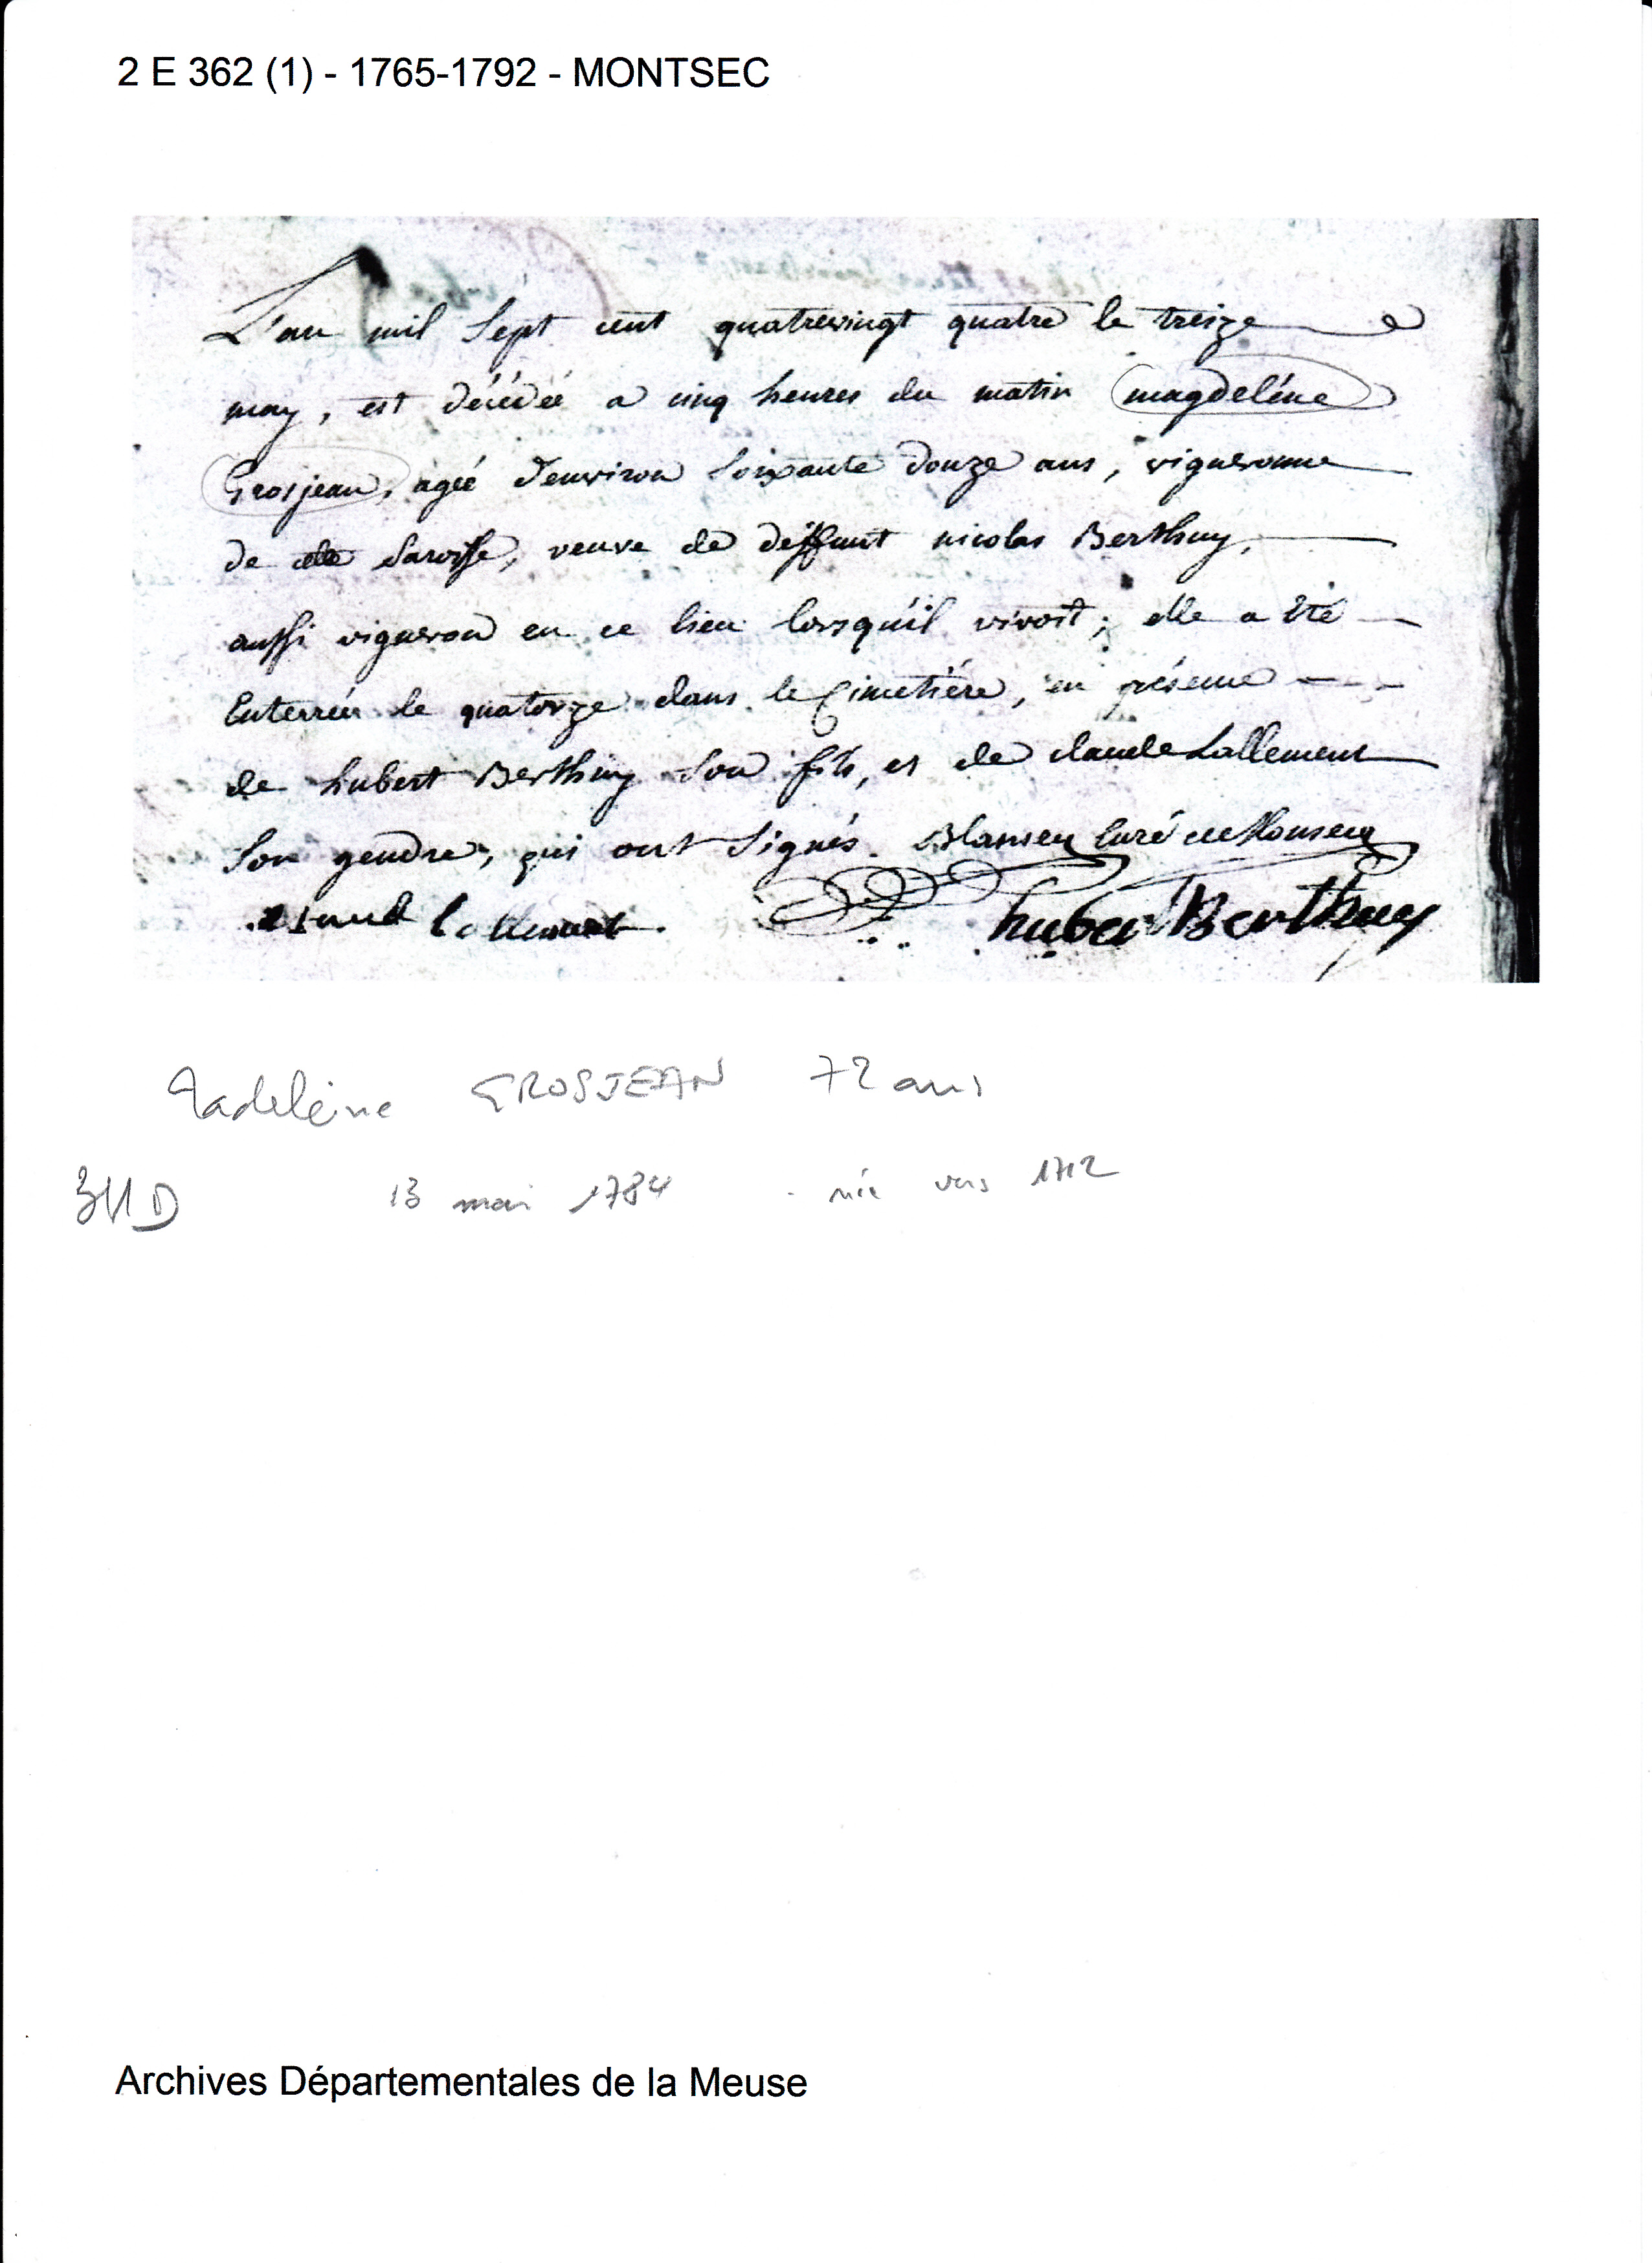 2 E 362 (1) - 1765-1792 - MONTSEC
L'an mil sept cent quatrevingt quatre le treize
may, est décédée a cinq heures du matin magdeléne
Grosjean, agée d'environ soixante douze ans, vigneronne
de paroisse, veuve de deffunt nicolas Berthuy,
aussi vigneron en ce lieu lorsqu'il vivoit; elle a été
Enterrée le quatorze dans le Cimetiére, en présence
de hubert Berthuy son fils, et de claude Lallement
son gendre, qui ont signés. Curé de Monsecq
Lallement. huber Berthuy
Madeleine GROSJEAN 72 ans
311 D 13 mai 1784 - née vers 1712
Archives Départementales de la Meuse